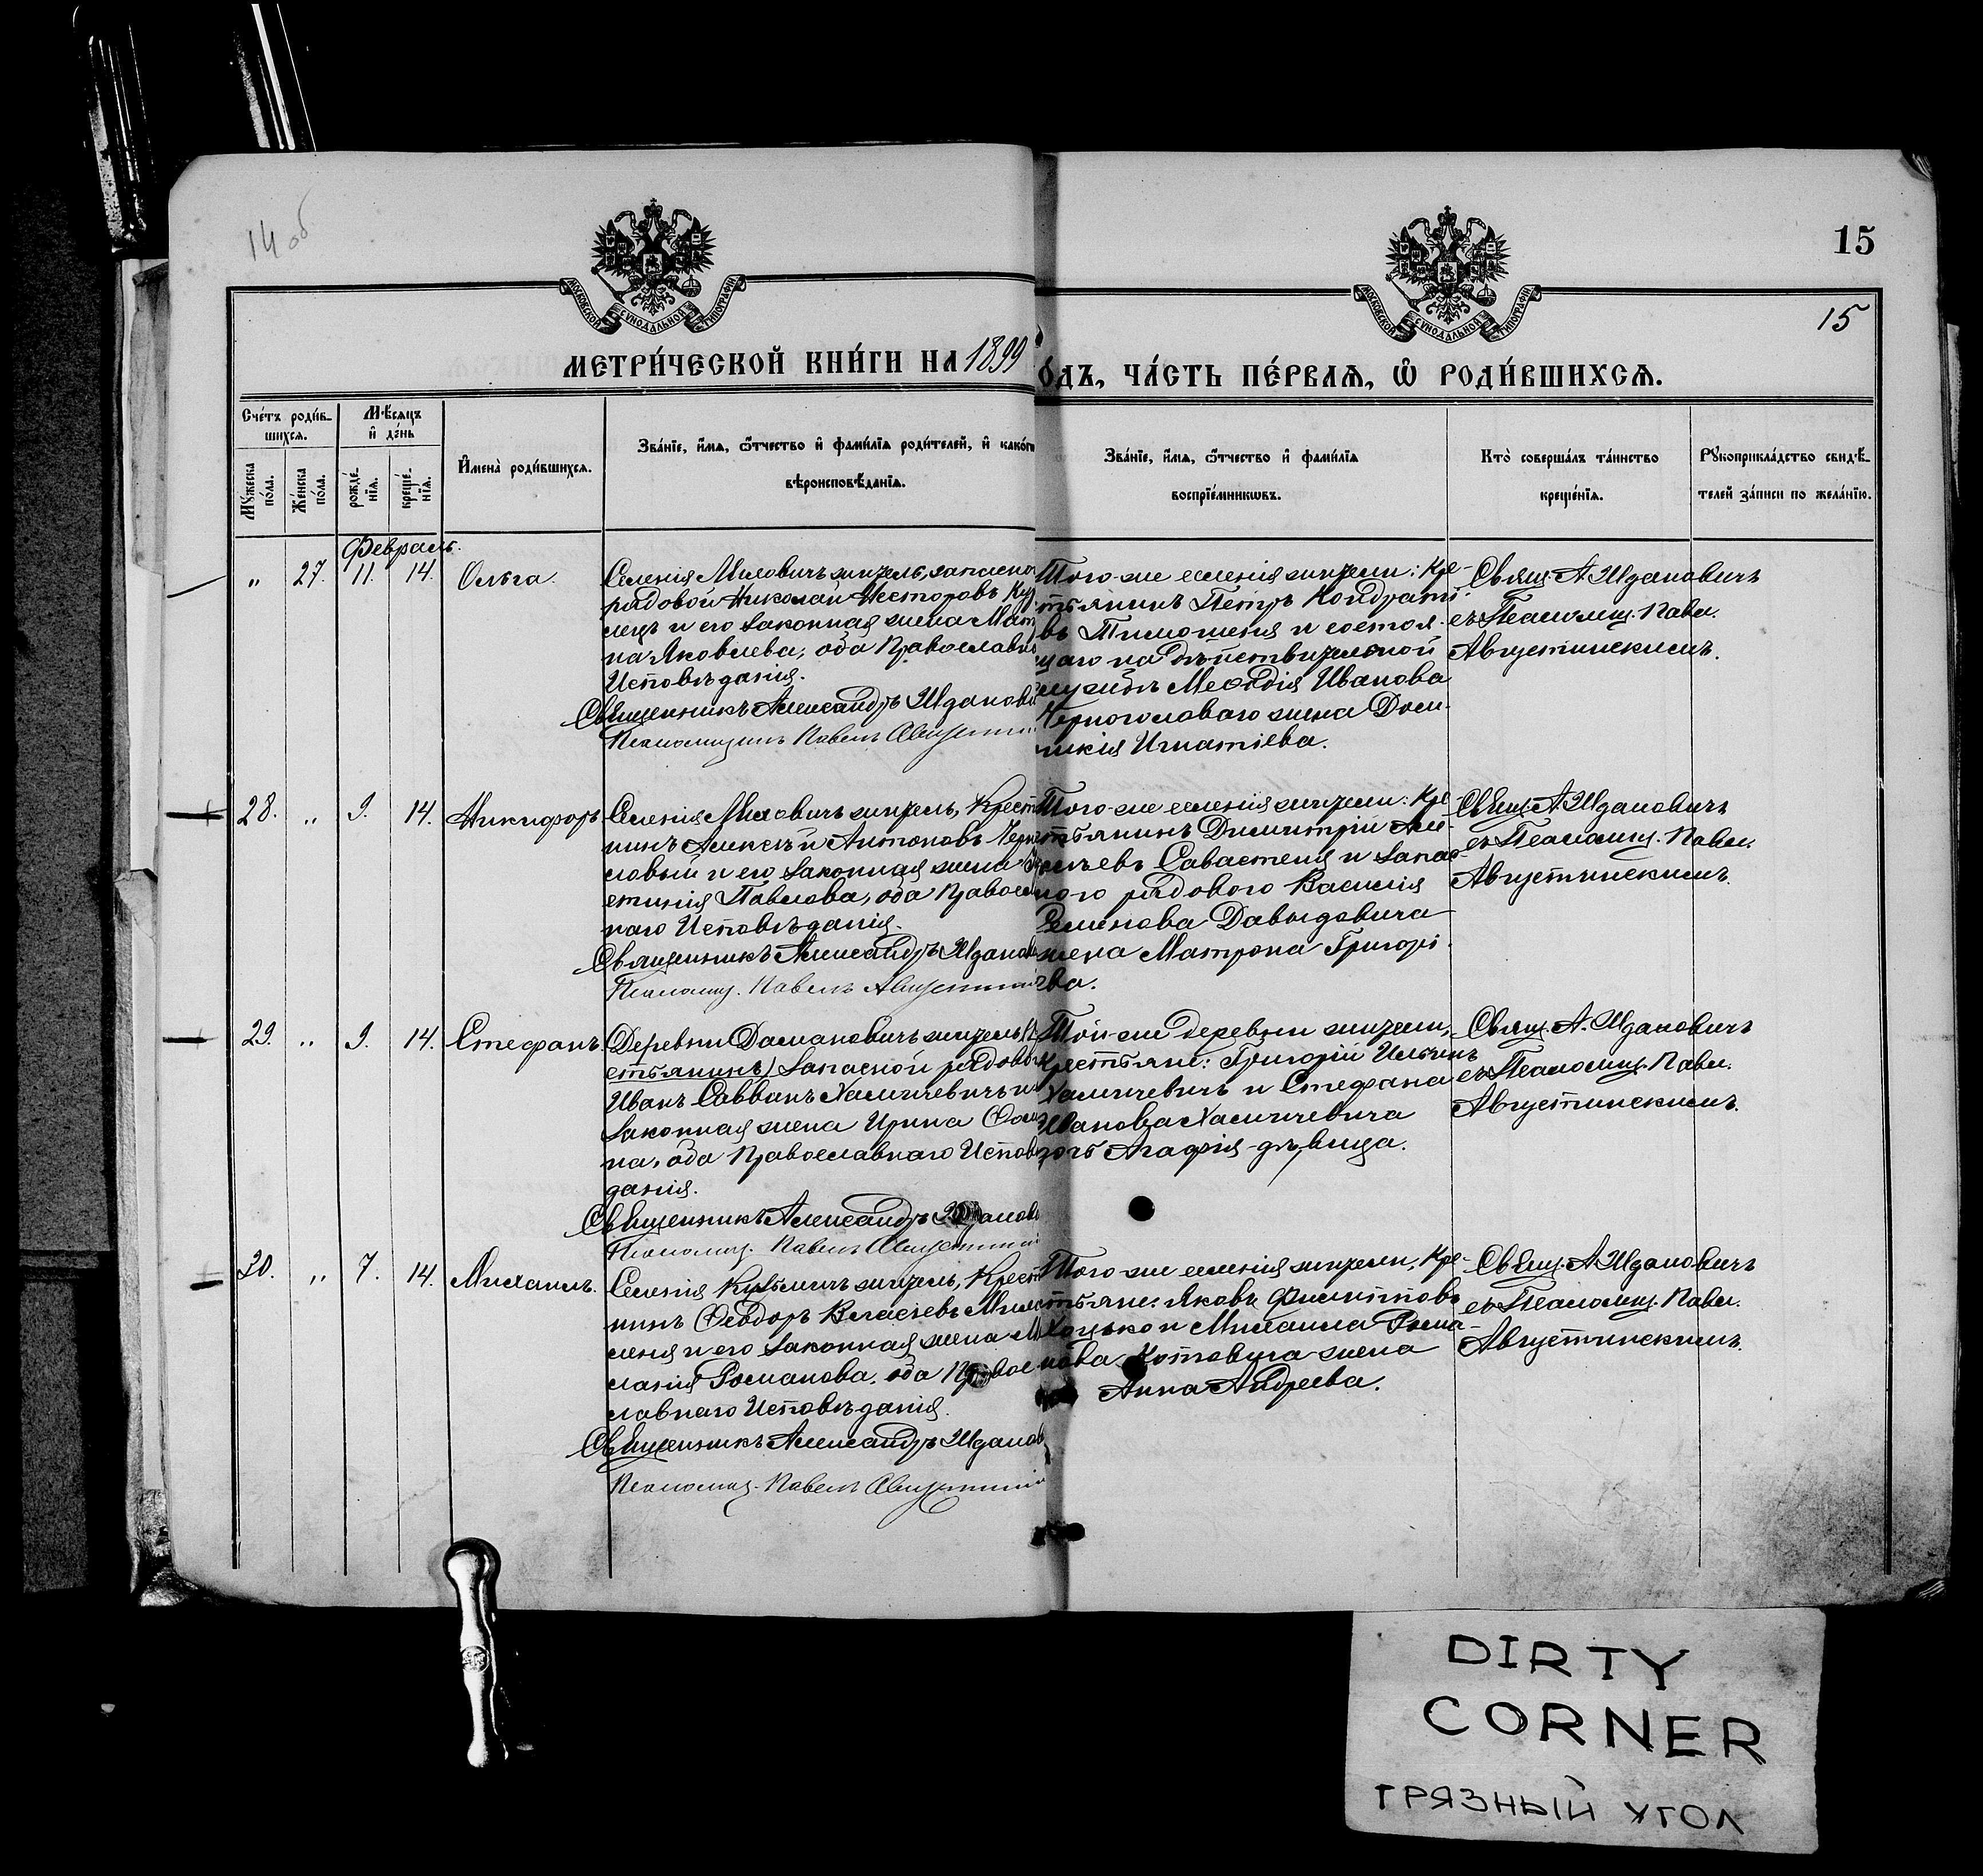 14 об
15
15
МОСКОВСКОЙ СѴНОДАЛЬНОЙ ТИПОГРАФІИ
МОСКОВСКОЙ СѴНОДАЛЬНОЙ ТИПОГРАФІИ
МЕТРИ́ЧЕСКОЙ КНИ́ГИ НА 1899
О́ДЪ, ЧА́СТЬ ПЕ́РВАѦ, Ѡ҆ РОДИ́ВШИХСѦ.
Сче́тъ роди́в-
шихсѧ.
Мѣ́сяцъ
и҆ де́нь
Мꙋ́жеска
по́ла.
Же́нска
по́ла.
рожде́-
нїѧ.
креще́-
нїѧ.
И҆мена̀ роди́вшихсѧ.
Зва́нїе, и҆́мѧ, ѻ҆́тчество и҆ фами́лїѧ роди́телей, и҆ како́гѡ
вѣроисповѣ́данїѧ.
Зва́нїе, и҆́мѧ, ѻ҆́тчество и҆ фами́лїѧ
воспрїе́мникѡвъ.
Кто̀ соверша́лъ та́инство
креще́нїѧ.
Рꙋкоприкла́дство свидѣ́-
телей за́писи по жела́нїю.
Февраль.
„ 27. 11. 14. Ольга.
Селенія Миловичъ житель, запасной
рядовой Николай Несторовъ
лецъ и его законная жена Мат
на Яковлева, оба Православна
Исповѣданія.
Священникъ Александръ Жданови
Псаломщикъ Павелъ Августин
Того-же селенія жители: Кре-
стьянинъ Петръ Кондрать-
въ Тимошеня и состоя-
щаго на дѣйствительной
службѣ Меѳодія Иванова
Черноголоваго жена Дом-
никія Игнатіева.
Свящ. А. Ждановичъ
съ Псаломщ. Павл.
Августинскимъ.
28. „ 9. 14. Никифоръ
Селенія Миловичъ житель, Крест
нинъ Алексѣй Антоновъ Черно
ловый и его законная жена
стинія Павлова, оба Правосла
наго Исповѣданія.
Священникъ Александръ Жданов
Псаломщ. Павелъ Августин
Того-же селенія жители: Кре-
стьянинъ Димитрій
Саватеня и запас-
ного рядового Василія
Семенова Давыдовича
жена Матрона Григорі-
ева.
Свящ. А. Ждановичъ
съ Псаломщ. Павл.
Августинскимъ.
29. „ 9. 14. Стефанъ.
Деревни Дамановичъ житель (Кр
стьянинъ) запасной рядовой
Иванъ Саввинъ Хамичевичъ и
законная жена Ирина Ѳом
на, оба Православнаго Исповѣ
данія.
Священникъ Александръ Жданов
Псаломщ. Павелъ Августин
Той-же деревни жители,
Крестьяне: Григорій Ильинъ
Хамичевичъ и Стефана
Иванова Хамичевича
дочь Агафія-дѣвица.
Свящ. А. Ждановичъ
съ Псаломщ. Павл.
Августинскимъ.
30. „ 7. 14. Михаилъ.
Селенія Кузьмичъ житель, Крест
нинъ Ѳеодоръ Власіевъ
и его законная жена
ланія Романова, оба Правос
лавнаго Исповѣданія.
Священникъ Александръ Жданов
Псаломщ. Павелъ Августин
Того-же селенія жители, Кре-
стьяне: Яковъ Филиповъ
и Михаила Рома-
нова Котовича жена
Анна Андреева.
Свящ. А. Ждановичъ
съ Псаломщ. Павл.
Августинскимъ.
DIRTY
CORNER
ГРЯЗНЫЙ УГОЛ